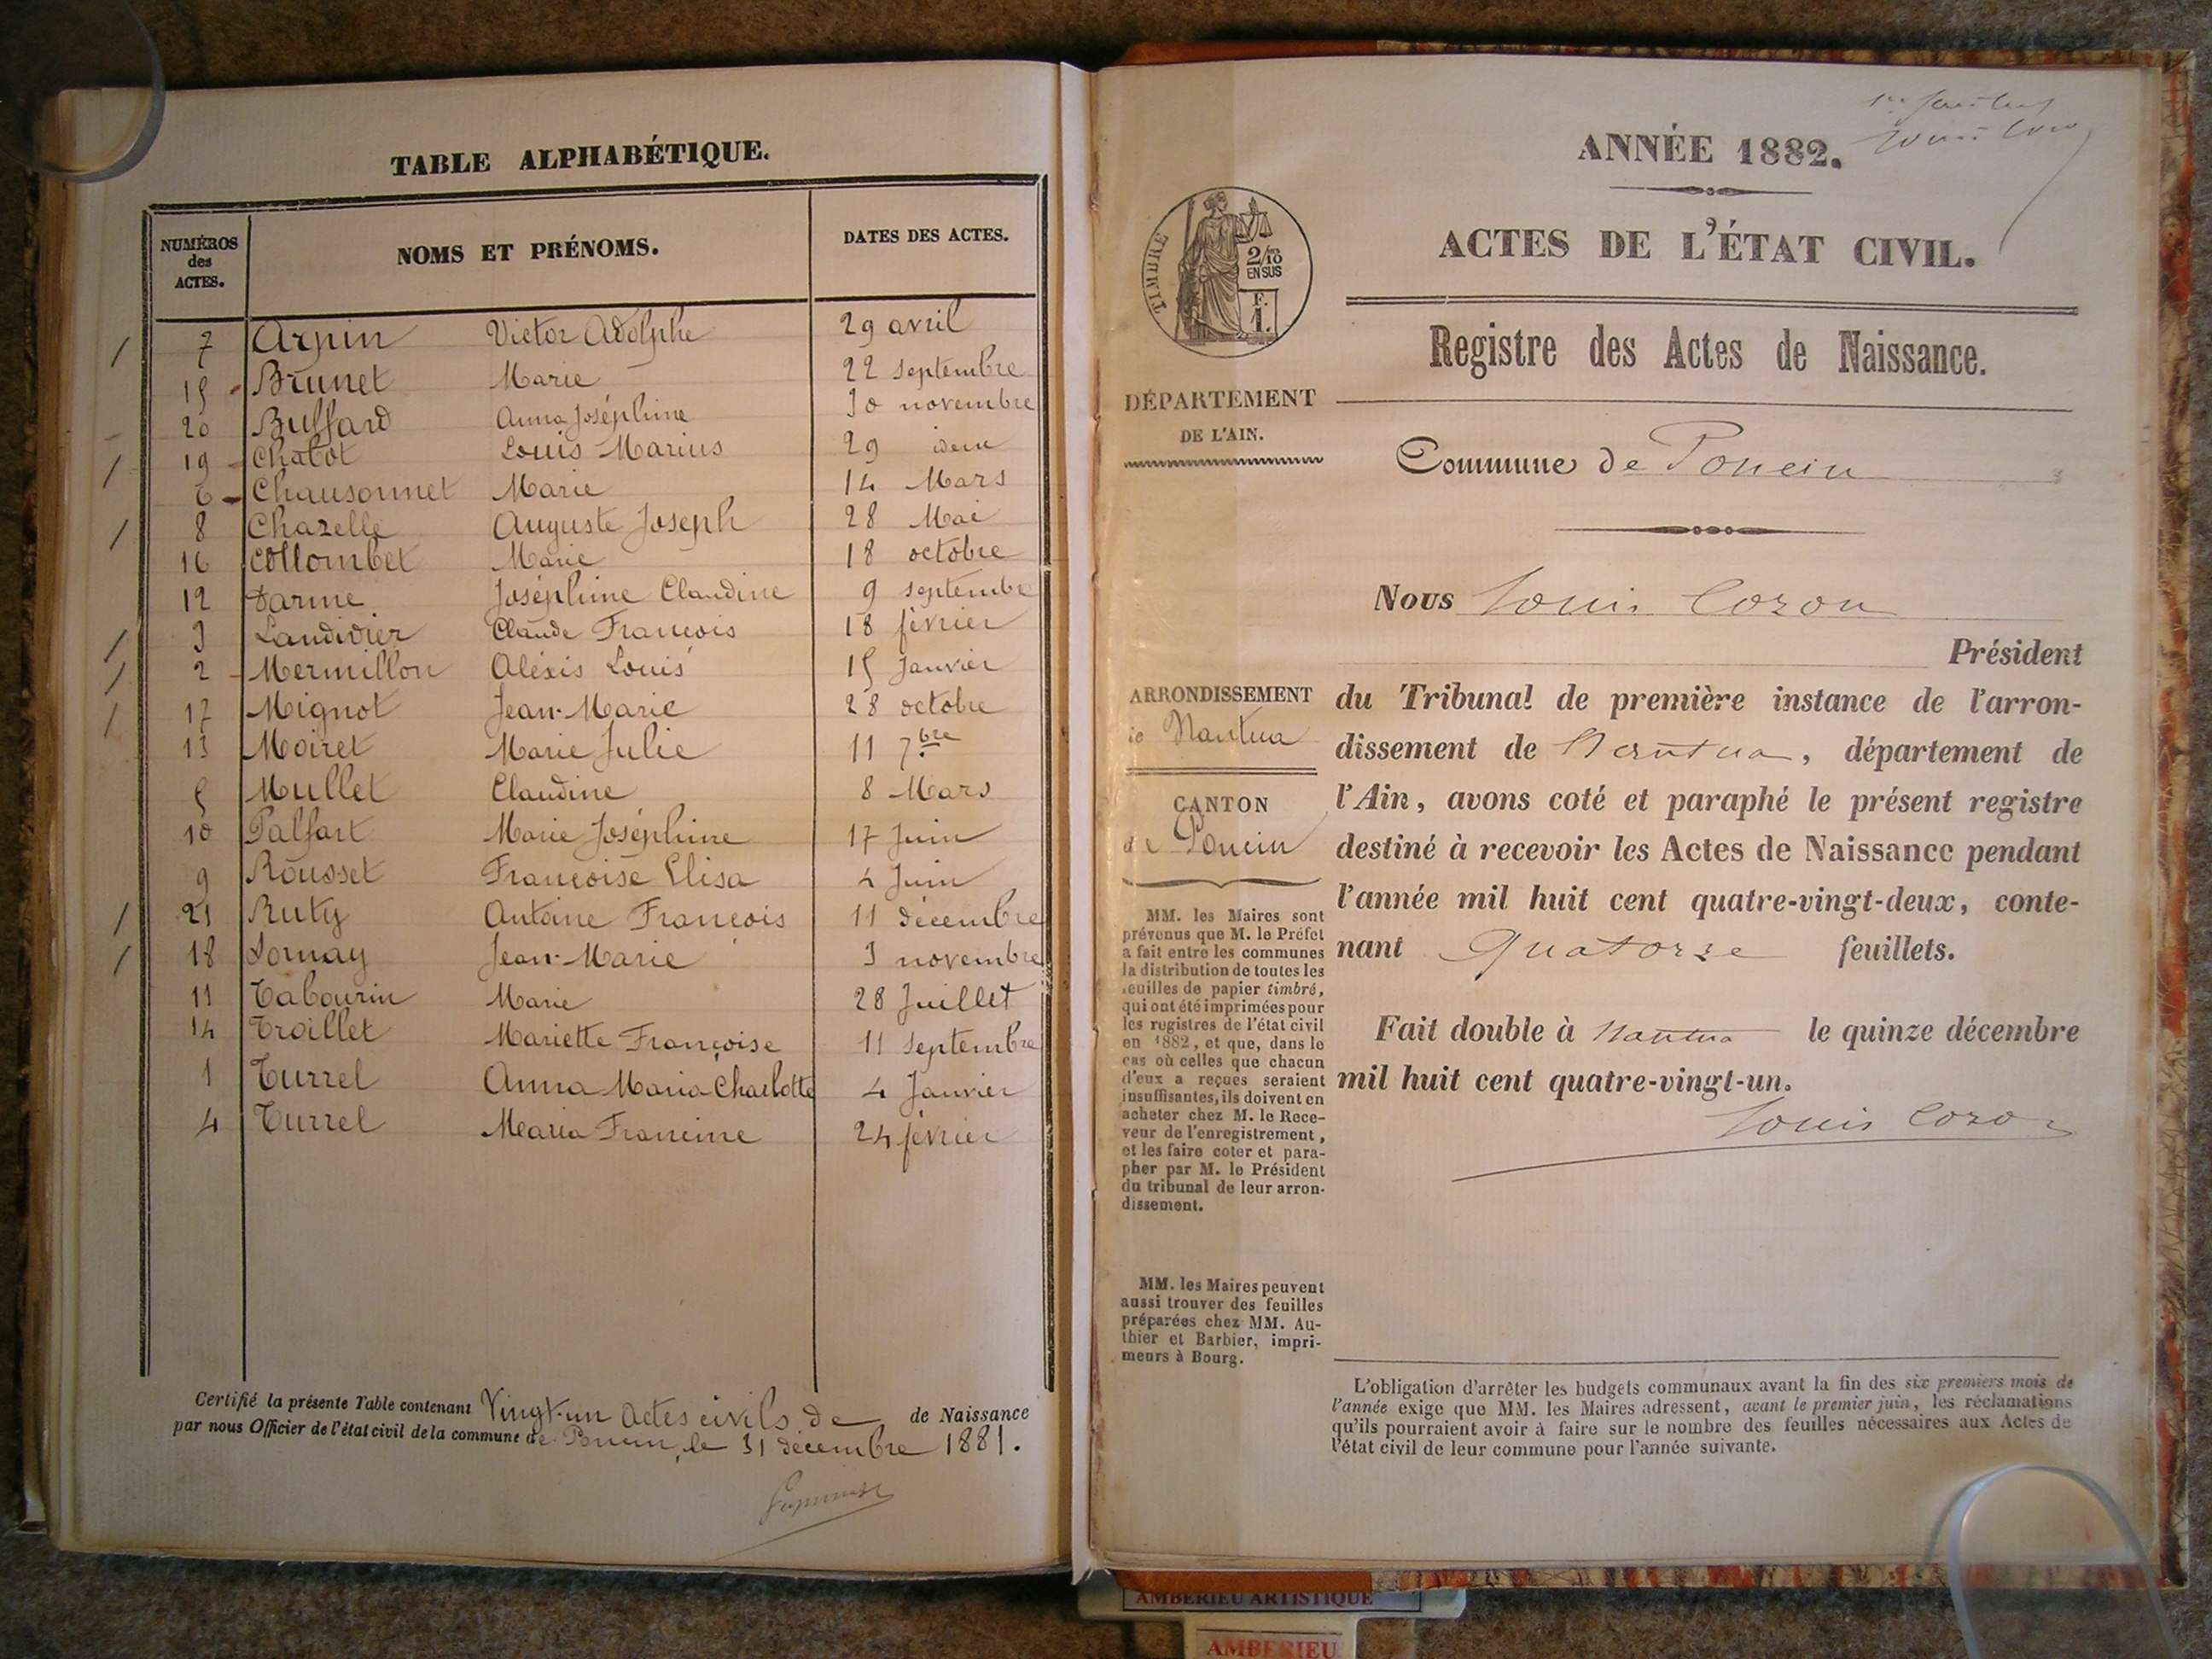 TABLE ALPHABÉTIQUE.
NUMÉROS des ACTES. NOMS ET PRÉNOMS. DATES DES ACTES.
7 Arpin Victor Adolphe 29 avril
15 Brunet Marie 22 septembre
20 Buffard Anna Joséphine 30 novembre
19 Chatot Louis Marius 29 idem
6 Chausonnet Marie 14 Mars
8 Chazelle Auguste Joseph 28 Mai
16 Collombet Marie 18 octobre
12 Darme Joséphine Claudine 9 septembre
3 Landivier Claude François 18 février
2 Mermillon Aléxis Louis 15 Janvier
17 Mignot Jean-Marie 28 octobre
13 Moiret Marie Julie 11 7bre
5 Mullet Claudine 8 Mars
10 Palfart Marie Joséphine 17 Juin
9 Rousset Françoise Elisa 4 Juin
21 Ruty Antoine François 11 décembre
18 Sornay Jean-Marie 3 novembre
11 Tabourin Marie 28 Juillet
14 Troillet Mariette Françoise 11 septembre
1 Turrel Anna Maria Charlotte 4 Janvier
4 Turrel Maria Francine 24 février
Certifié la présente Table contenant Vingt-un actes civils de de Naissance
par nous Officier de l'état civil de la commune de Poncin, le 31 décembre 1881.
ANNÉE 1882.
ACTES DE L'ÉTAT CIVIL.
TIMBRE
2/10
EN SUS
F.
1.
Registre des Actes de Naissance.
DÉPARTEMENT
DE L'AIN.
Commune de Poncin
Nous Louis Cozon
Président
ARRONDISSEMENT
de Nantua
CANTON
de Poncin
du Tribunal de première instance de l'arron-
dissement de Nantua, département de
l'Ain, avons coté et paraphé le présent registre
destiné à recevoir les Actes de Naissance pendant
l'année mil huit cent quatre-vingt-deux, conte-
nant Quatorze feuillets.
Fait double à Nantua le quinze décembre
mil huit cent quatre-vingt-un.
Louis Cozon
MM. les Maires sont
prévenus que M. le Préfet
a fait entre les communes
la distribution de toutes les
feuilles de papier timbré,
qui ont été imprimées pour
les registres de l'état civil
en 1882, et que, dans le
cas où celles que chacun
d'eux a reçues seraient
insuffisantes, ils doivent en
acheter chez M. le Rece-
veur de l'enregistrement,
et les faire coter et para-
pher par M. le Président
du tribunal de leur arron-
dissement.
MM. les Maires peuvent
aussi trouver des feuilles
préparées chez MM. Au-
thier et Barbier, impri-
meurs à Bourg.
L'obligation d'arrêter les budgets communaux avant la fin des six premiers mois de
l'année exige que MM. les Maires adressent, avant le premier juin, les réclamations
qu'ils pourraient avoir à faire sur le nombre des feuilles nécessaires aux Actes de
l'état civil de leur commune pour l'année suivante.
AMBERIEU ARTISTIQUE
AMBERIEU